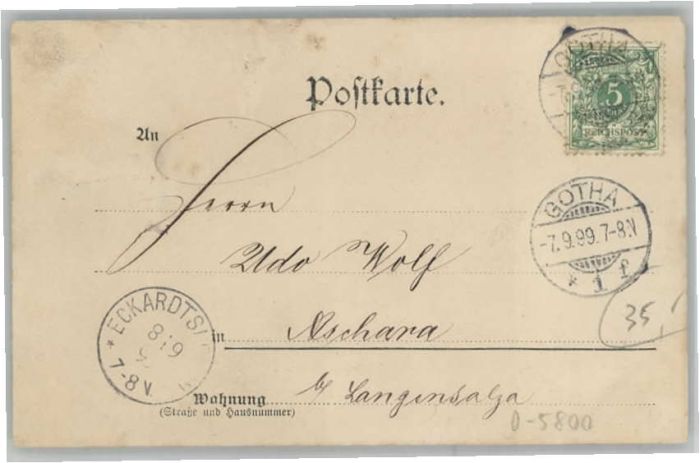 Postkarte.
GOTHA
5
REICHSPOST
An
Herrn
GOTHA
-7.9.99.7-8.N
* 1 f
Udo Wolf
35,
* ECKARDTS
8 9
7-8 N
in Aschara
b/ Langensalza
Wohnung
(Straße und Hausnummer)
D-5800